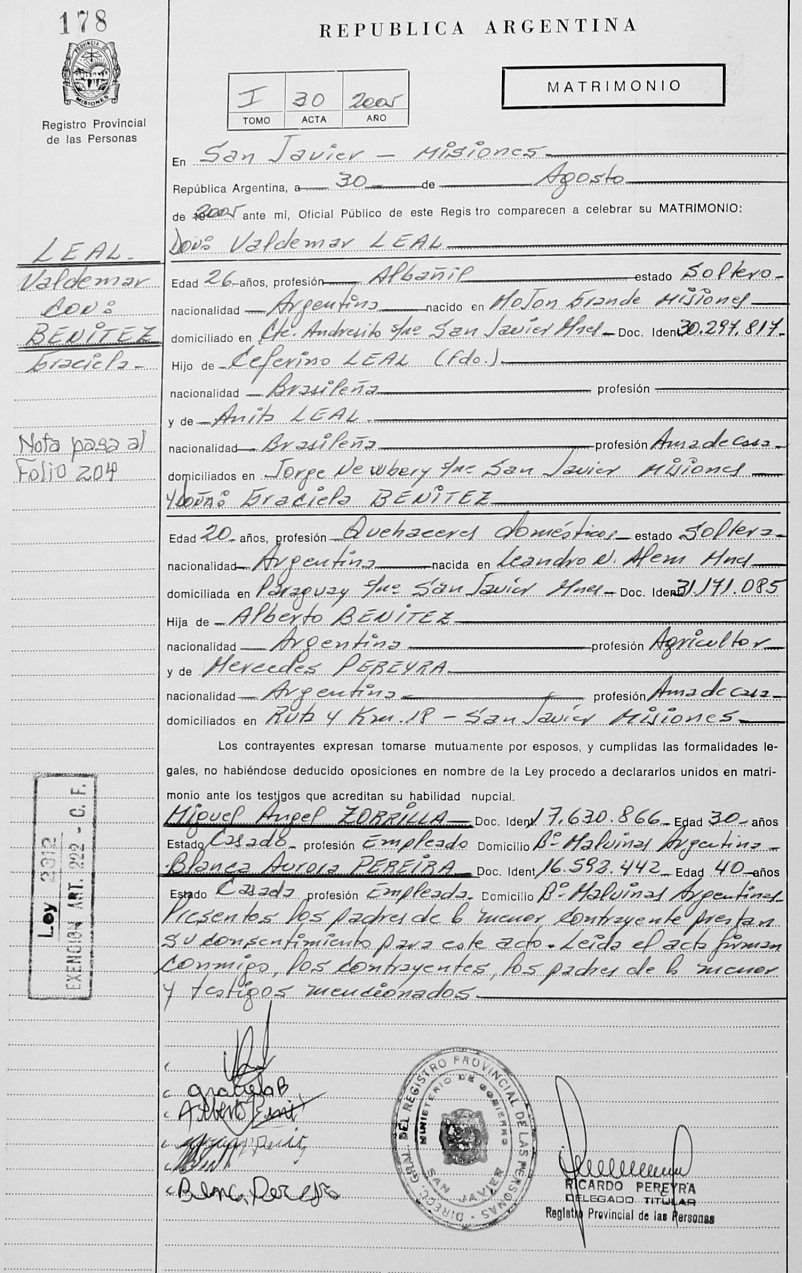 178
REPUBLICA ARGENTINA
PROVINCIA DE MISIONES
Registro Provincial
de las Personas
I 30 2005
TOMO ACTA AÑO
MATRIMONIO
En San Javier - Misiones
República Argentina, a 30 de Agosto
de 2005 ante mí, Oficial Público de este Registro comparecen a celebrar su MATRIMONIO:
Don: Valdemar LEAL
LEAL
Valdemar
con:
BENITEZ
Graciela
Nota pasa al
Folio 204
Edad 26 años, profesión Albañil estado Soltero
nacionalidad Argentina nacido en Mojon Grande Misiones
domiciliado en Cte. Andresito San Javier Mnes Doc. Ident 30.297.817
Hijo de Ceferino LEAL (fdo.)
nacionalidad Brasileña profesión
y de Anita LEAL
nacionalidad Brasileña profesión Ama de casa
domiciliados en Jorge Newbery San Javier Misiones
y Doña: Graciela BENITEZ
Edad 20 años, profesión Quehaceres domésticos estado Soltera
nacionalidad Argentina nacida en Leandro N. Alem Mnes
domiciliada en Paraguay San Javier Mnes Doc. Ident 31.171.085
Hija de Alberto BENITEZ
nacionalidad Argentina profesión Agricultor
y de Mercedes PEREYRA
nacionalidad Argentina profesión Ama de casa
domiciliados en Ruta 4 Km. 18 - San Javier Misiones
Los contrayentes expresan tomarse mutuamente por esposos, y cumplidas las formalidades le-
gales, no habiéndose deducido oposiciones en nombre de la Ley procedo a declararlos unidos en matri-
monio ante los testigos que acreditan su habilidad nupcial.
Miguel Angel ZORRILLA Doc. Ident 17.630.866 Edad 30 años
Estado Casado profesión Empleado Domicilio Bº Malvinas Argentina
Blanca Aurora PEREIRA Doc. Ident 16.592.442 Edad 40 años
Estado Casada profesión Empleada Domicilio Bº Malvinas Argentinas
Presentes los padres de la menor contrayente prestan
su consentimiento para este acto. Leida el acta firman
conmigo, los contrayentes, los padres de la menor
y testigos mencionados.
Ley 2312
EXENCIÓN ART. 222 - C. F.
graciela B
Alberto Benit
Blanca Pereyra
DIRECC. GRAL. DEL REGISTRO PROVINCIAL DE LAS PERSONAS
MINISTERIO DE GOBIERNO
SAN JAVIER
RICARDO PEREYRA
DELEGADO TITULAR
Registro Provincial de las Personas